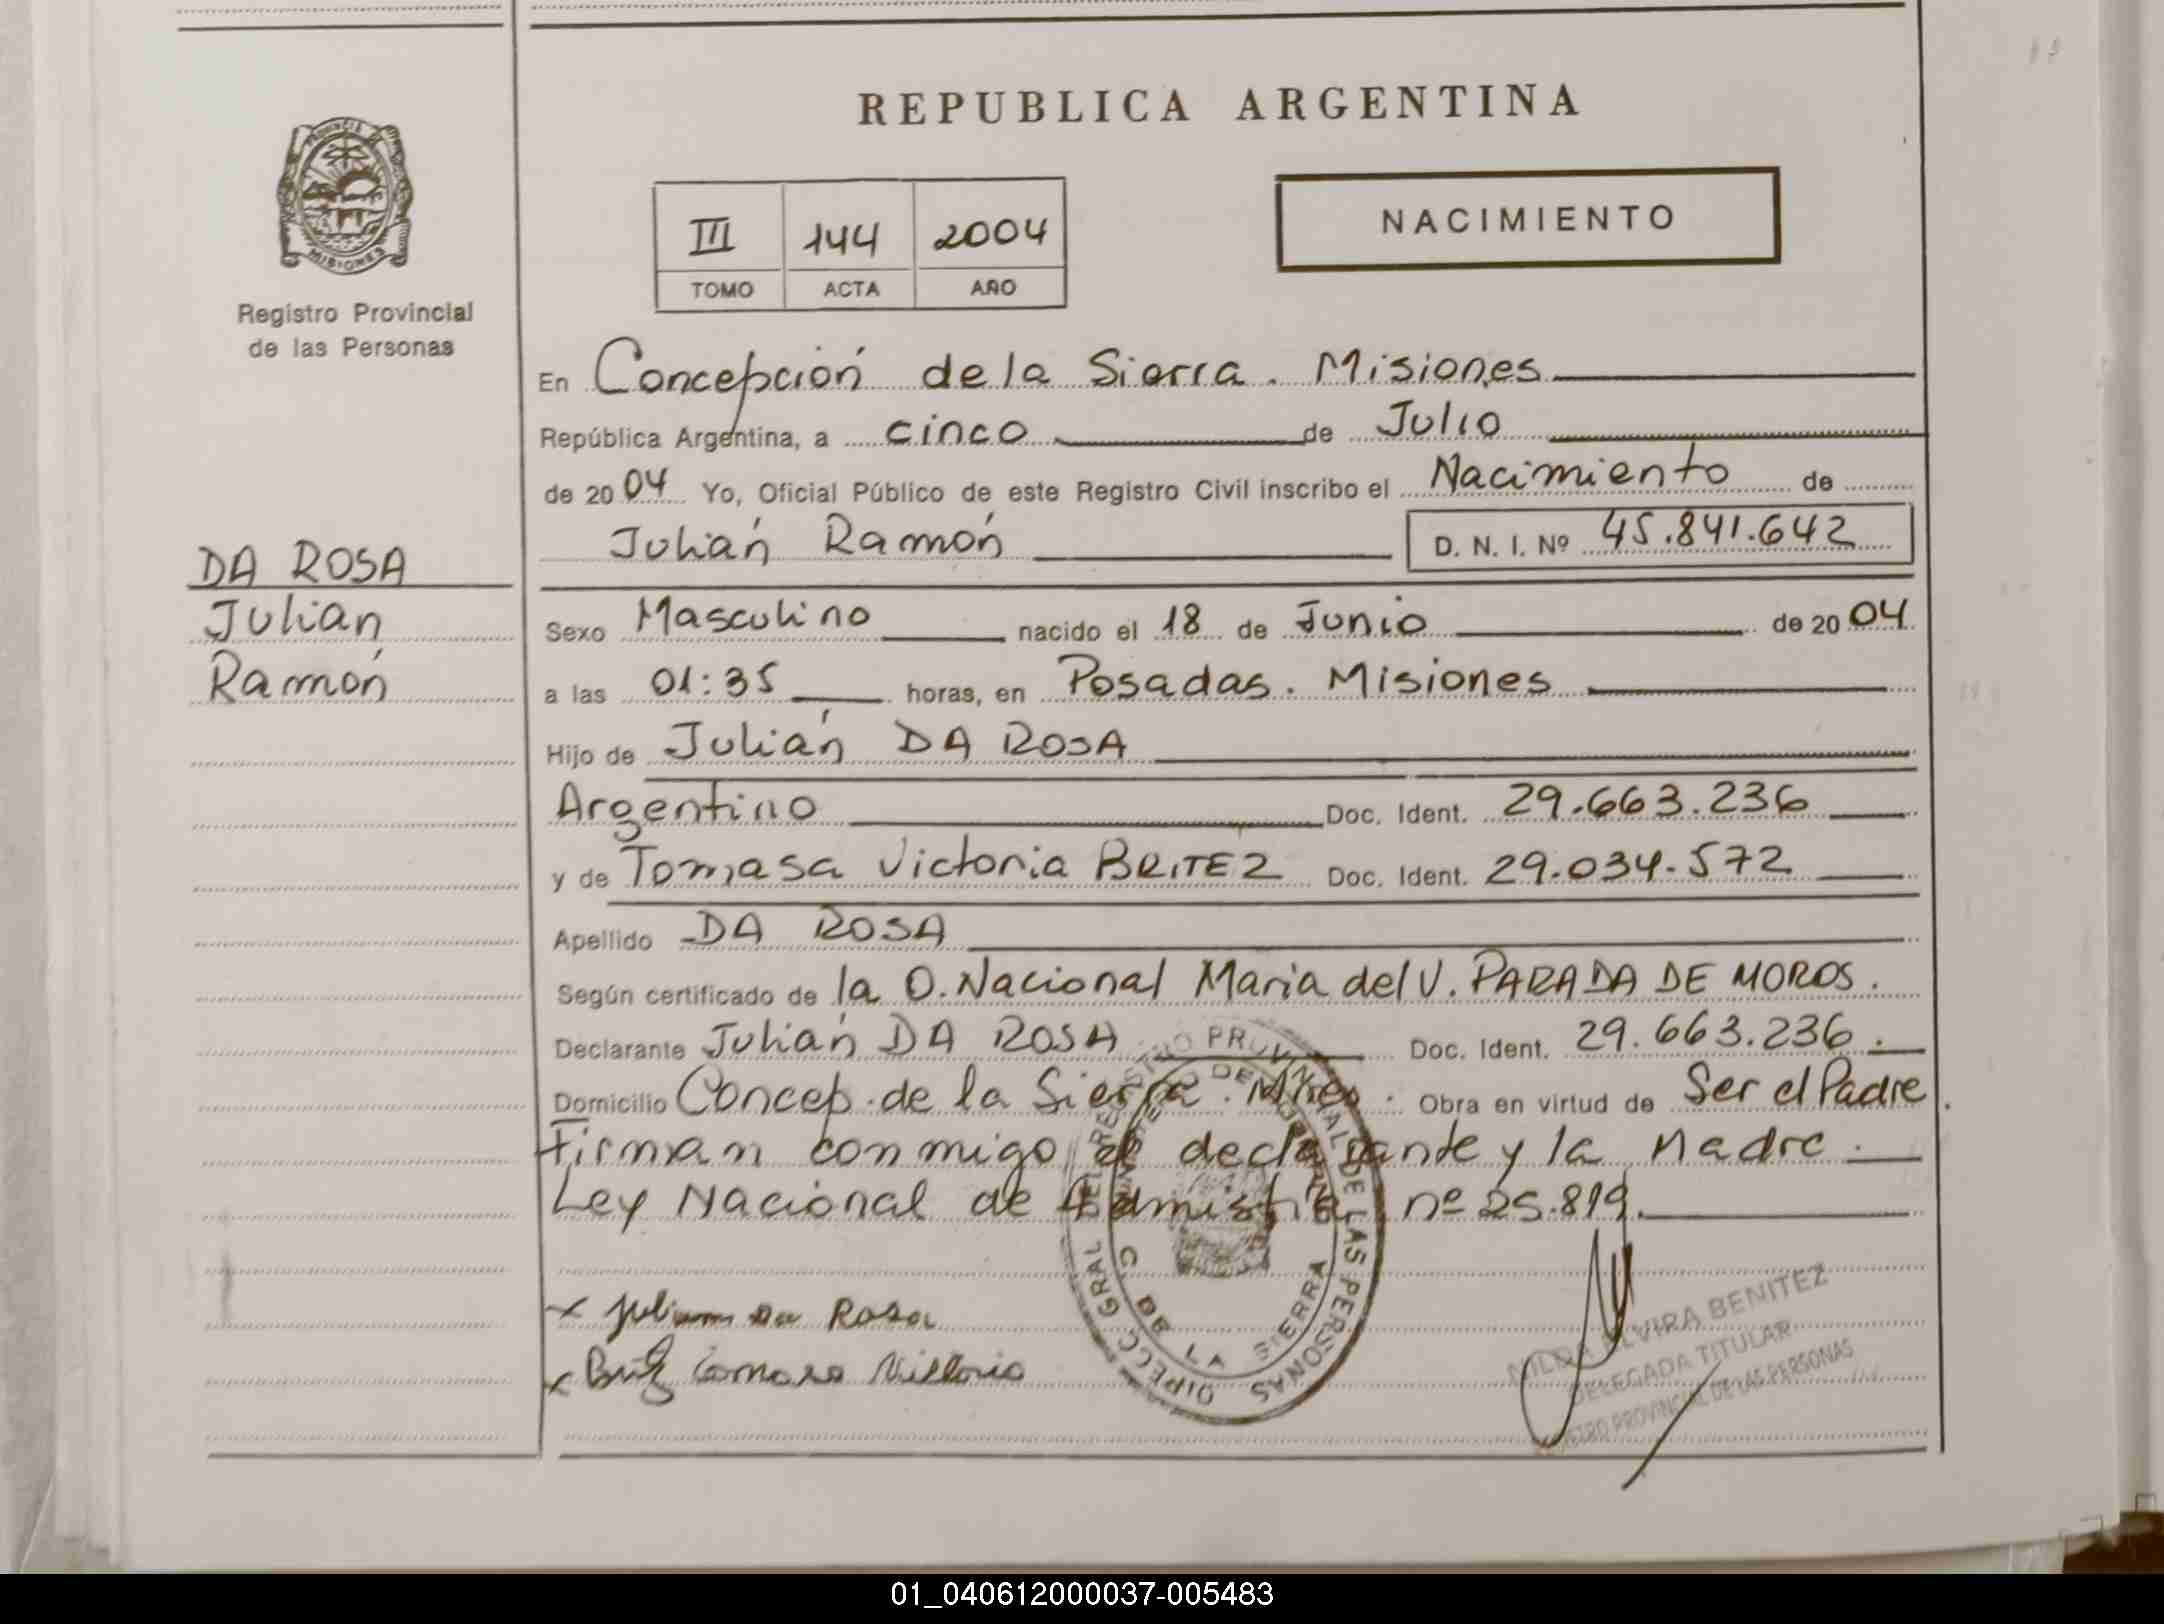 REPUBLICA ARGENTINA
PROVINCIA DE MISIONES
Registro Provincial
de las Personas
III 144 2004
TOMO ACTA AÑO
NACIMIENTO
En Concepción de la Sierra. Misiones
República Argentina, a cinco de Julio
de 2004 Yo, Oficial Público de este Registro Civil inscribo el Nacimiento de
Julián Ramón D. N. I. Nº 45.841.642
DA ROSA
Julián
Ramón
Sexo Masculino nacido el 18 de Junio de 2004
a las 01:35 horas, en Posadas. Misiones
Hijo de Julián DA ROSA
Argentino Doc. Ident. 29.663.236
y de Tomasa Victoria BRITEZ Doc. Ident. 29.034.572
Apellido DA ROSA
Según certificado de la O. Nacional Maria del V. PARADA DE MOROS.
Declarante Julián DA ROSA Doc. Ident. 29.663.236.
Domicilio Concep. de la Sierra. Mnes. Obra en virtud de Ser el Padre.
Firman conmigo el declarante y la Madre.
Ley Nacional de Admistia nº 25.819.
x Julian Da Rosa
x Britez Tomasa Victoria
DIRECC. GRAL. DEL REGISTRO PROVINCIAL DE LAS PERSONAS
MINISTERIO DE
C. DE LA SIERRA
NILDA ELVIRA BENITEZ
DELEGADA TITULAR
REGISTRO PROVINCIAL DE LAS PERSONAS
01_040612000037-005483